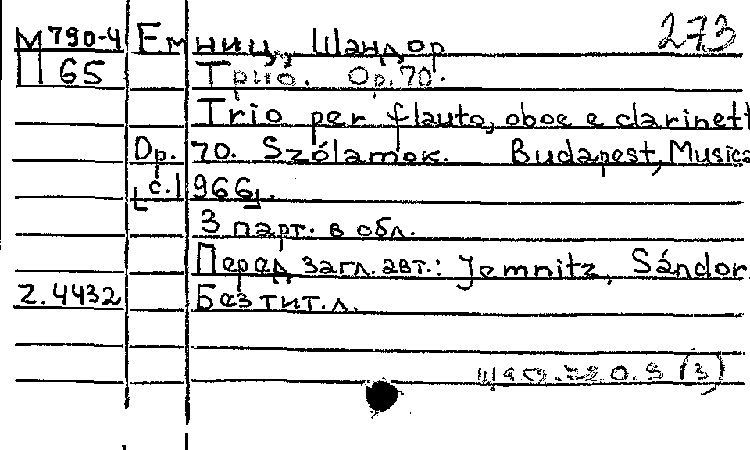 М790-4 Емниц, Шандор 273
П 65 Трио. Op.70.
Trio per flauto, oboe e clarinett
Op. 70. Szólamok. Budapest, Musica
[c.1966].
3 парт. в обл.
Перед загл. авт.: Jemnitz, Sándor.
Z.4432 Без тит. л.